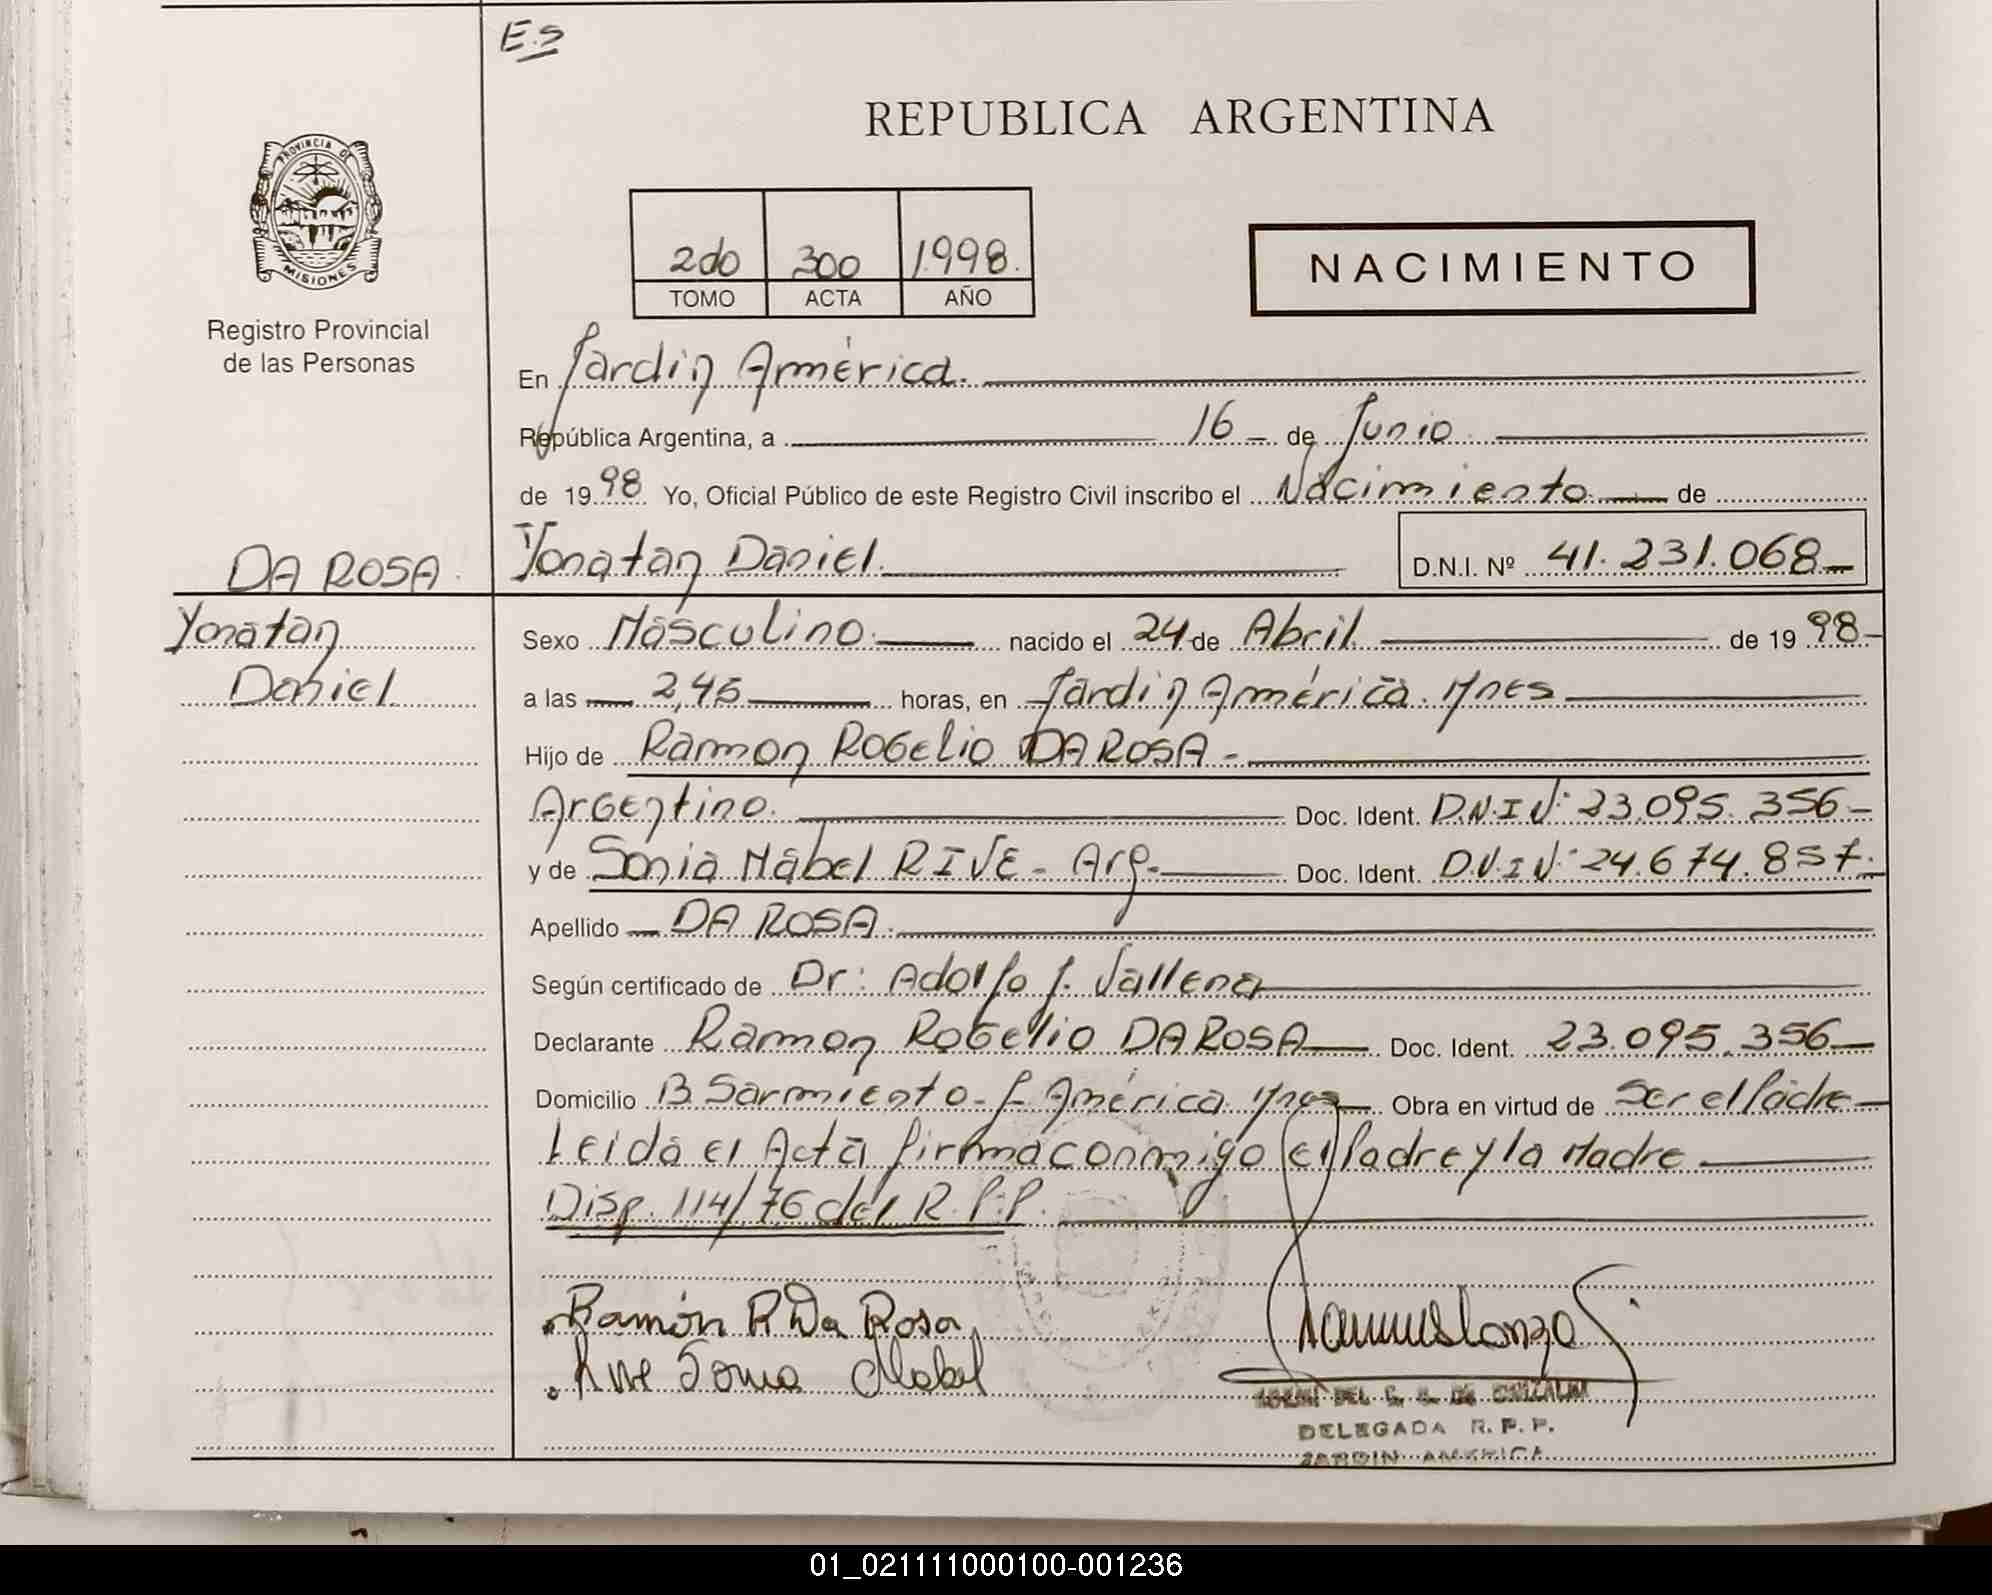 E.S
REPUBLICA ARGENTINA
PROVINCIA DE
MISIONES
Registro Provincial
de las Personas
2do 300 1.998.
TOMO ACTA AÑO
NACIMIENTO
En Jardin América.
República Argentina, a 16 - de Junio
de 19 98 Yo, Oficial Público de este Registro Civil inscribo el Nacimiento de
DA ROSA. Yonatan Daniel. D.N.I. Nº 41.231.068
Yonatan Sexo Masculino. nacido el 24 de Abril. de 19 98-
Daniel. a las 2,45 horas, en Jardin América. Mnes
Hijo de Ramon Rogelio DA ROSA -
Argentino. Doc. Ident. D.N.I Nº 23.095.356-
y de Sonia Mabel RIVE - Arg. Doc. Ident. D.N.I Nº 24.674.857.
Apellido DA ROSA.
Según certificado de Dr: Adolfo J. Vallena
Declarante Ramon Rogelio DA ROSA Doc. Ident. 23.095.356
Domicilio B Sarmiento - J. América. Mnes Obra en virtud de Ser el Padre
Leida el Acta firma conmigo el Padre y la Madre
Disp. 114/76 del R.P.P.
Ramón R Da Rosa
Rive Sonia Mabel
DELEGADA R.P.P.
JARDIN AMERICA
01_021111000100-001236